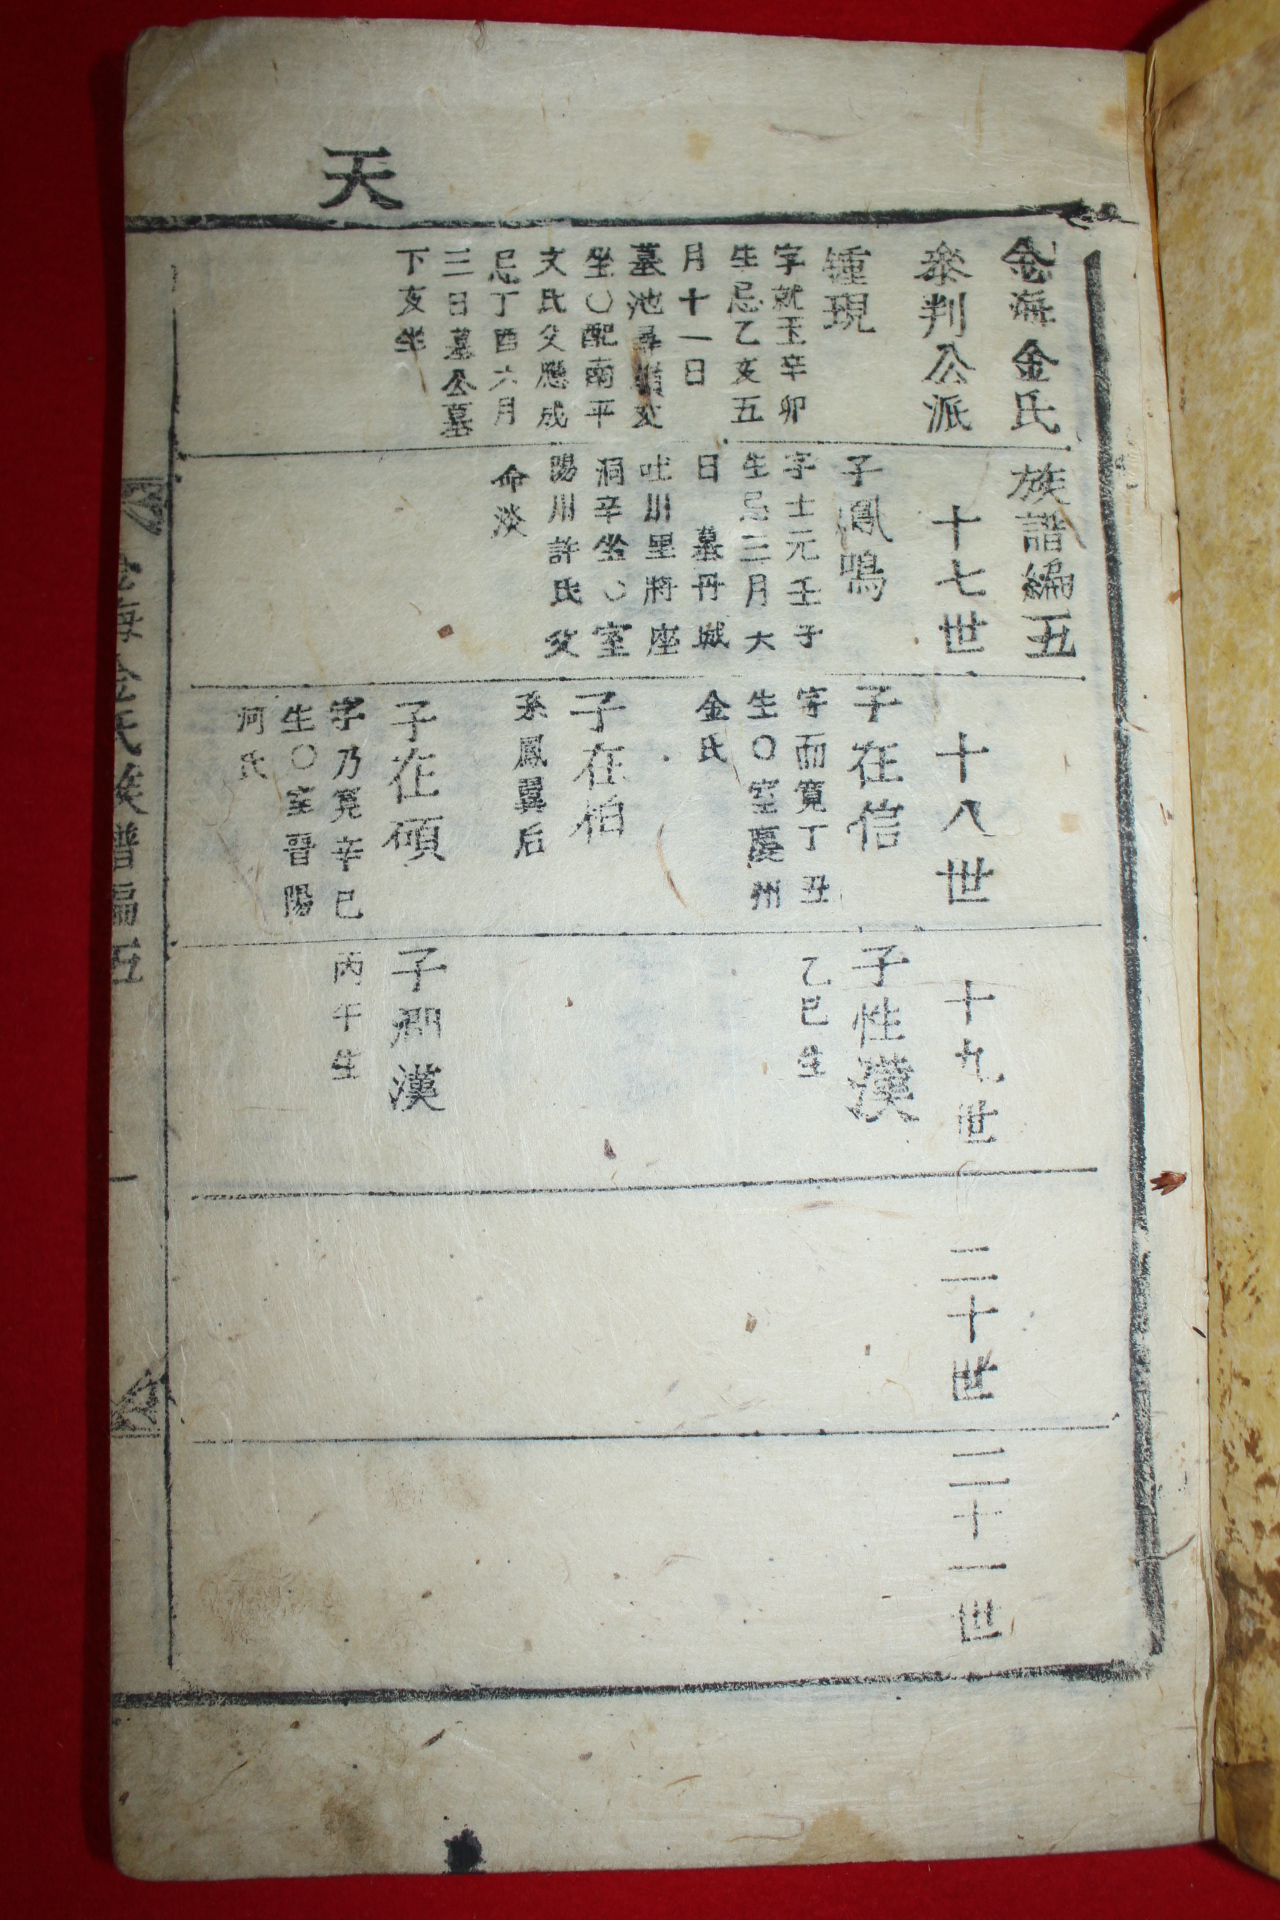 天
金海金氏族譜編五
叅判公派
鍾現
字就玉辛卯
生忌乙亥五
月十一日
墓池
坐○配南平
文氏父應成
忌丁酉六月
三日墓公墓
下亥坐
十七世
子鳳鳴
字士元壬子
生忌三月六
日 墓丹城
吐川里將座
洞辛坐○室
陽川許氏父
命淡
十八世
子在信
字而寬丁丑
生○室慶州
金氏
子在栢
系鳳翼后
子在碩
字乃寬辛巳
生○室晋陽
河氏
十九世
子性漢
乙巳生
子潤漢
丙午生
二十世
二十一世
金海金氏族譜編五
一